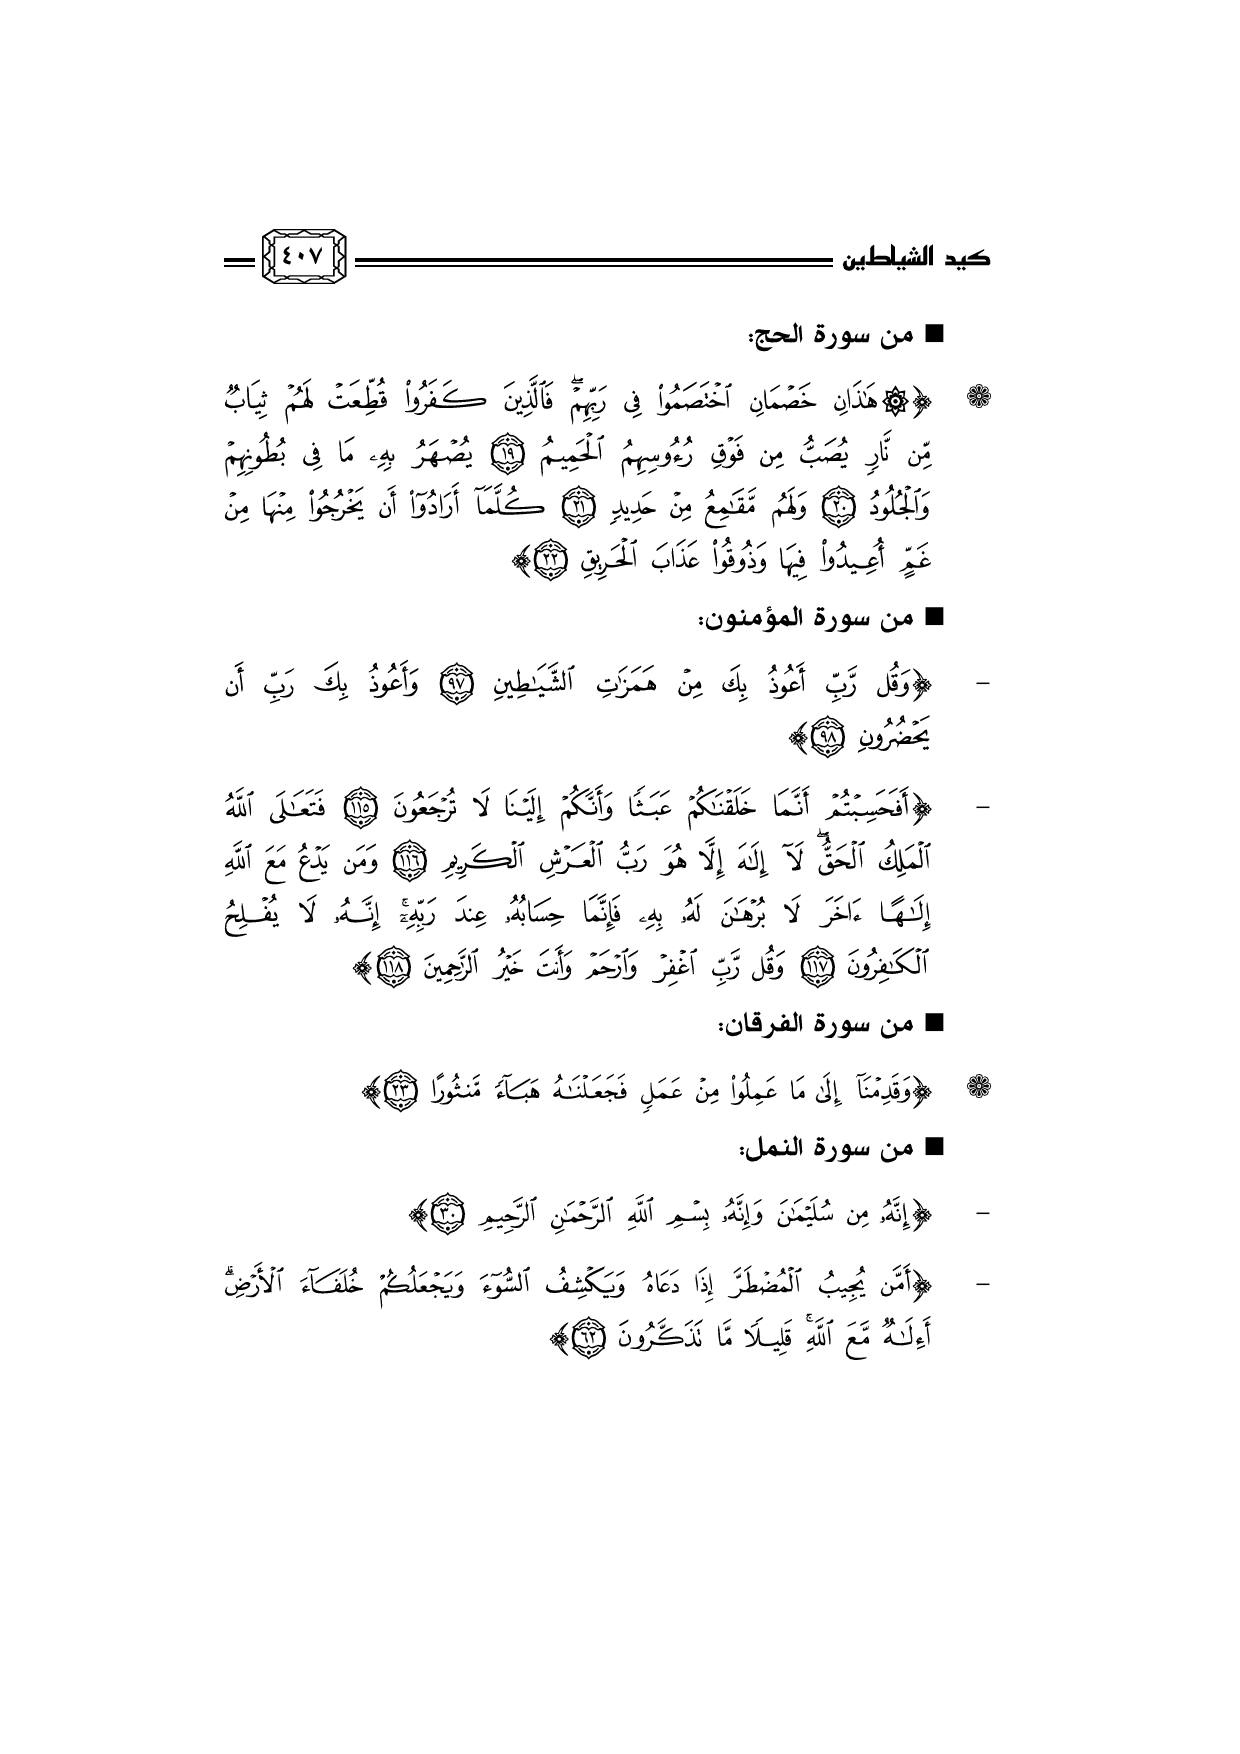 كيد الشياطين ٤٠٧
■ من سورة الحج:
❁ ﴿۞هَٰذَانِ خَصۡمَانِ ٱخۡتَصَمُواْ فِي رَبِّهِمۡۖ فَٱلَّذِينَ كَفَرُواْ قُطِّعَتۡ لَهُمۡ ثِيَابٞ
مِّن نَّارٖ يُصَبُّ مِن فَوۡقِ رُءُوسِهِمُ ٱلۡحَمِيمُ ١٩ يُصۡهَرُ بِهِۦ مَا فِي بُطُونِهِمۡ
وَٱلۡجُلُودُ ٢٠ وَلَهُم مَّقَٰمِعُ مِنۡ حَدِيدٖ ٢١ كُلَّمَآ أَرَادُوٓاْ أَن يَخۡرُجُواْ مِنۡهَا مِنۡ
غَمٍّ أُعِيدُواْ فِيهَا وَذُوقُواْ عَذَابَ ٱلۡحَرِيقِ ٢٢﴾
■ من سورة المؤمنون:
– ﴿وَقُل رَّبِّ أَعُوذُ بِكَ مِنۡ هَمَزَٰتِ ٱلشَّيَٰطِينِ ٩٧ وَأَعُوذُ بِكَ رَبِّ أَن
يَحۡضُرُونِ ٩٨﴾
– ﴿أَفَحَسِبۡتُمۡ أَنَّمَا خَلَقۡنَٰكُمۡ عَبَثٗا وَأَنَّكُمۡ إِلَيۡنَا لَا تُرۡجَعُونَ ١١٥ فَتَعَٰلَى ٱللَّهُ
ٱلۡمَلِكُ ٱلۡحَقُّۖ لَآ إِلَٰهَ إِلَّا هُوَ رَبُّ ٱلۡعَرۡشِ ٱلۡكَرِيمِ ١١٦ وَمَن يَدۡعُ مَعَ ٱللَّهِ
إِلَٰهًا ءَاخَرَ لَا بُرۡهَٰنَ لَهُۥ بِهِۦ فَإِنَّمَا حِسَابُهُۥ عِندَ رَبِّهِۦٓۚ إِنَّهُۥ لَا يُفۡلِحُ
ٱلۡكَٰفِرُونَ ١١٧ وَقُل رَّبِّ ٱغۡفِرۡ وَٱرۡحَمۡ وَأَنتَ خَيۡرُ ٱلرَّٰحِمِينَ ١١٨﴾
■ من سورة الفرقان:
❁ ﴿وَقَدِمۡنَآ إِلَىٰ مَا عَمِلُواْ مِنۡ عَمَلٖ فَجَعَلۡنَٰهُ هَبَآءٗ مَّنثُورًا ٢٣﴾
■ من سورة النمل:
– ﴿إِنَّهُۥ مِن سُلَيۡمَٰنَ وَإِنَّهُۥ بِسۡمِ ٱللَّهِ ٱلرَّحۡمَٰنِ ٱلرَّحِيمِ ٣٠﴾
– ﴿أَمَّن يُجِيبُ ٱلۡمُضۡطَرَّ إِذَا دَعَاهُ وَيَكۡشِفُ ٱلسُّوٓءَ وَيَجۡعَلُكُمۡ خُلَفَآءَ ٱلۡأَرۡضِۗ
أَءِلَٰهٞ مَّعَ ٱللَّهِۚ قَلِيلٗا مَّا تَذَكَّرُونَ ٦٢﴾